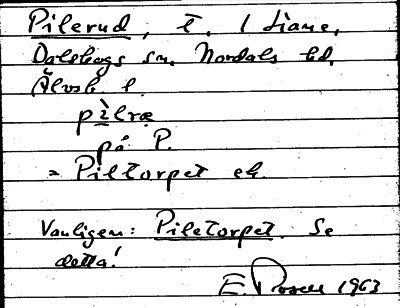 Pilerud, t. 1 Liane,
Dalskogs sn. Nordals hd.
Älvsb. l.
pìlræ
på P.
= Piltorpet ek.
Vanligen: Piletorpet. Se
detta!
E. 1963